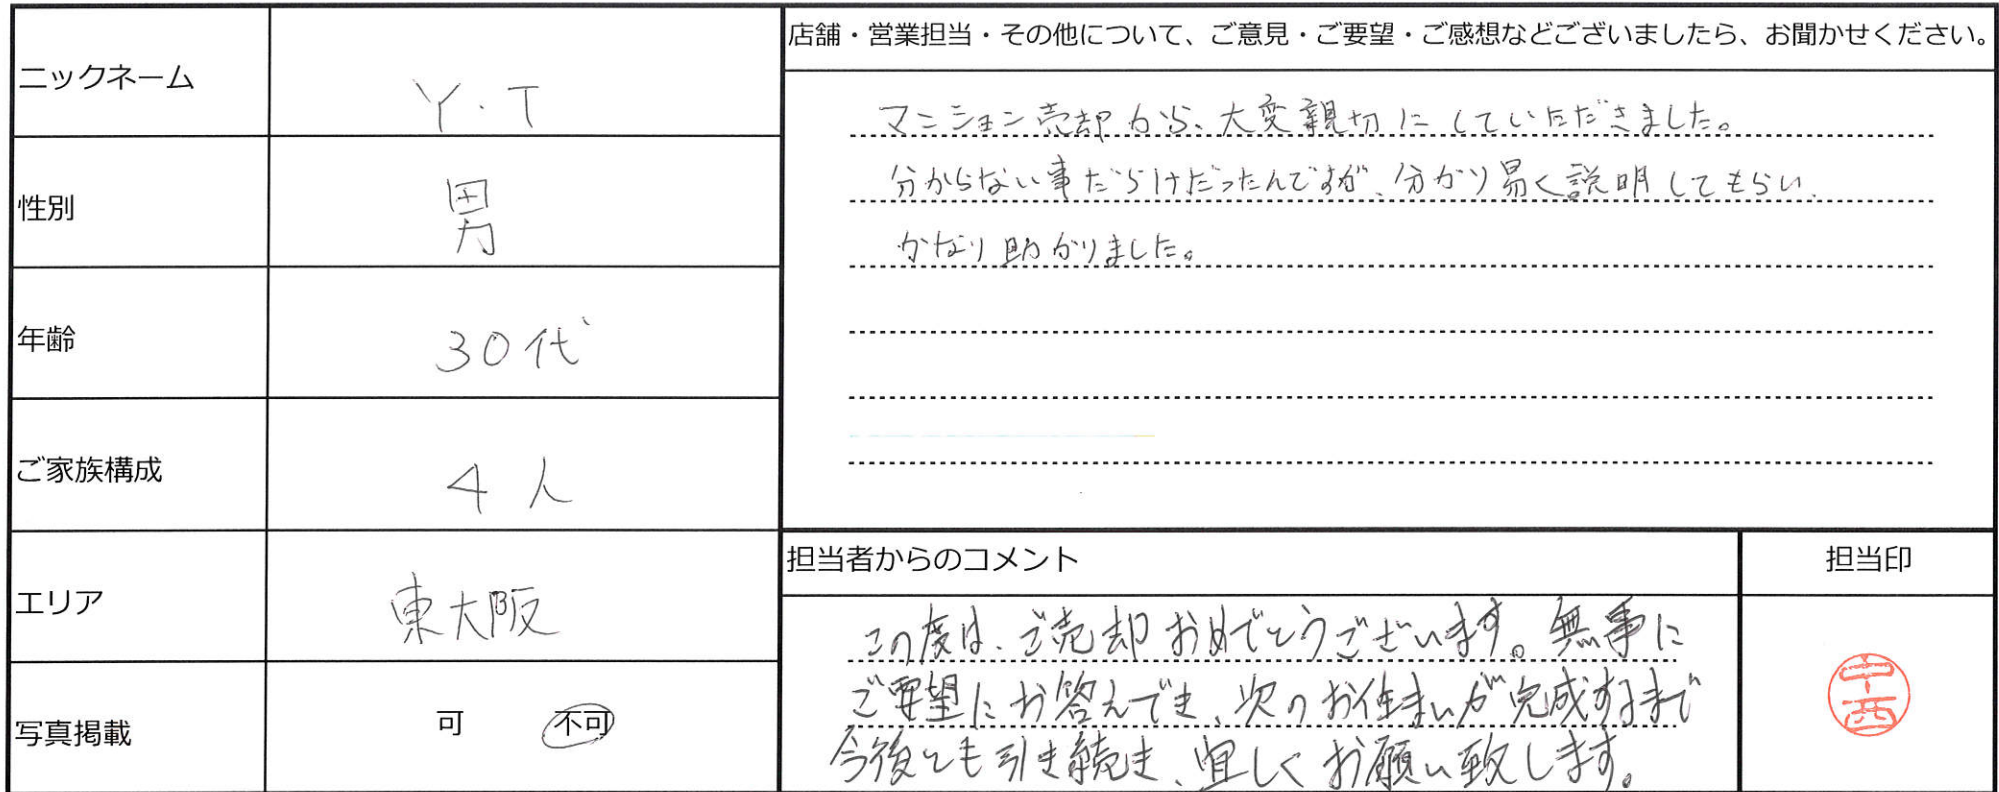 ニックネーム
Y・T
性別
男
年齢
30代
ご家族構成
4人
エリア
東大阪
写真掲載
可 不可
店舗・営業担当・その他について、ご意見・ご要望・ご感想などございましたら、お聞かせください。
マンション売却から、大変親切にしていただきました。
分からない事だらけだったんですが、分かり易く説明してもらい、
かなり助かりました。
担当者からのコメント
この度は、ご売却おめでとうございます。無事に
ご要望にお答えでき、次のお住まいが完成するまで
今後とも引き続き、宜しくお願い致します。
担当印
中西